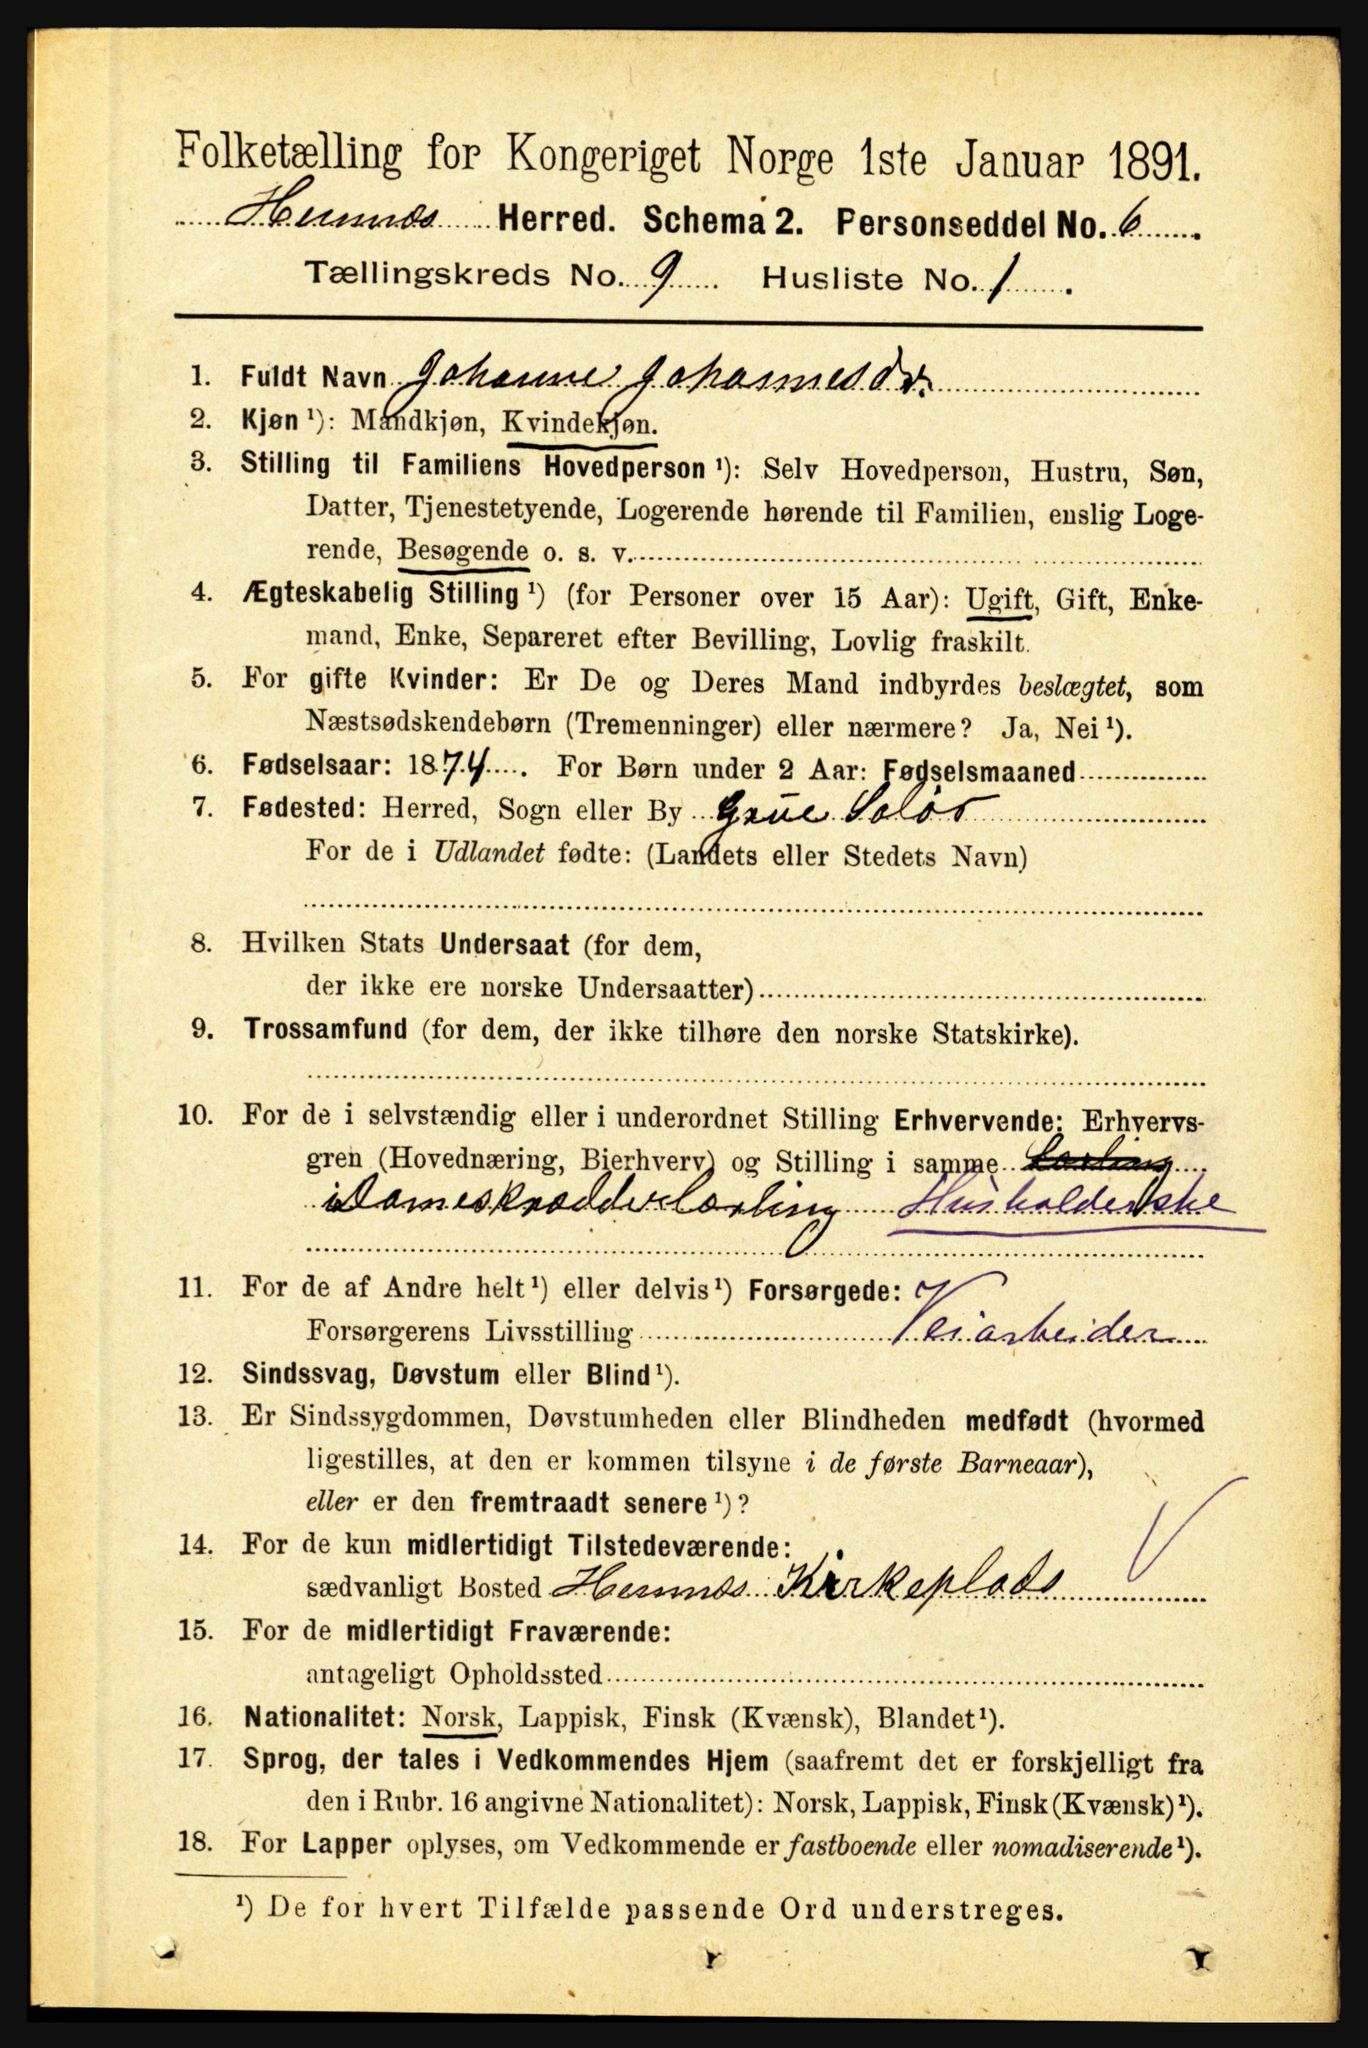 Folketælling for Kongeriget Norge 1ste Januar 1891.
Hemnes Herred. Schema 2. Personseddel No. 6.
Tællingskreds No. 9. Husliste No. 1.
1. Fuldt Navn Johanne Johannesdr.
2. Kjøn ¹): Mandkjøn, Kvindekjøn.
3. Stilling til Familiens Hovedperson ¹): Selv Hovedperson, Hustru, Søn,
Datter, Tjenestetyende, Logerende hørende til Familien, enslig Loge-
rende, Besøgende o. s. v.
4. Ægteskabelig Stilling ¹) (for Personer over 15 Aar): Ugift, Gift, Enke-
mand, Enke, Separeret efter Bevilling, Lovlig fraskilt.
5. For gifte Kvinder: Er De og Deres Mand indbyrdes beslægtet, som
Næstsødskendebørn (Tremenninger) eller nærmere? Ja, Nei ¹).
6. Fødselsaar: 1874. For Børn under 2 Aar: Fødselsmaaned
7. Fødested: Herred, Sogn eller By Grue Solør
For de i Udlandet fødte: (Landets eller Stedets Navn)
8. Hvilken Stats Undersaat (for dem,
der ikke ere norske Undersaatter)
9. Trossamfund (for dem, der ikke tilhøre den norske Statskirke).
10. For de i selvstændig eller i underordnet Stilling Erhvervende: Erhvervs-
gren (Hovednæring, Bierhverv) og Stilling i samme Lærling
i Dameskrædderlærling Husholderske
11. For de af Andre helt ¹) eller delvis ¹) Forsørgede:
Forsørgerens Livsstilling Veiarbeider
12. Sindssvag, Døvstum eller Blind ¹).
13. Er Sindssygdommen, Døvstumheden eller Blindheden medfødt (hvormed
ligestilles, at den er kommen tilsyne i de første Barneaar),
eller er den fremtraadt senere ¹)?
14. For de kun midlertidigt Tilstedeværende:
sædvanligt Bosted Hemnes Kirkeplads
15. For de midlertidigt Fraværende:
antageligt Opholdssted
16. Nationalitet: Norsk, Lappisk, Finsk (Kvænsk), Blandet ¹).
17. Sprog, der tales i Vedkommendes Hjem (saafremt det er forskjelligt fra
den i Rubr. 16 angivne Nationalitet): Norsk, Lappisk, Finsk (Kvænsk) ¹).
18. For Lapper oplyses, om Vedkommende er fastboende eller nomadiserende ¹).
¹) De for hvert Tilfælde passende Ord understreges.